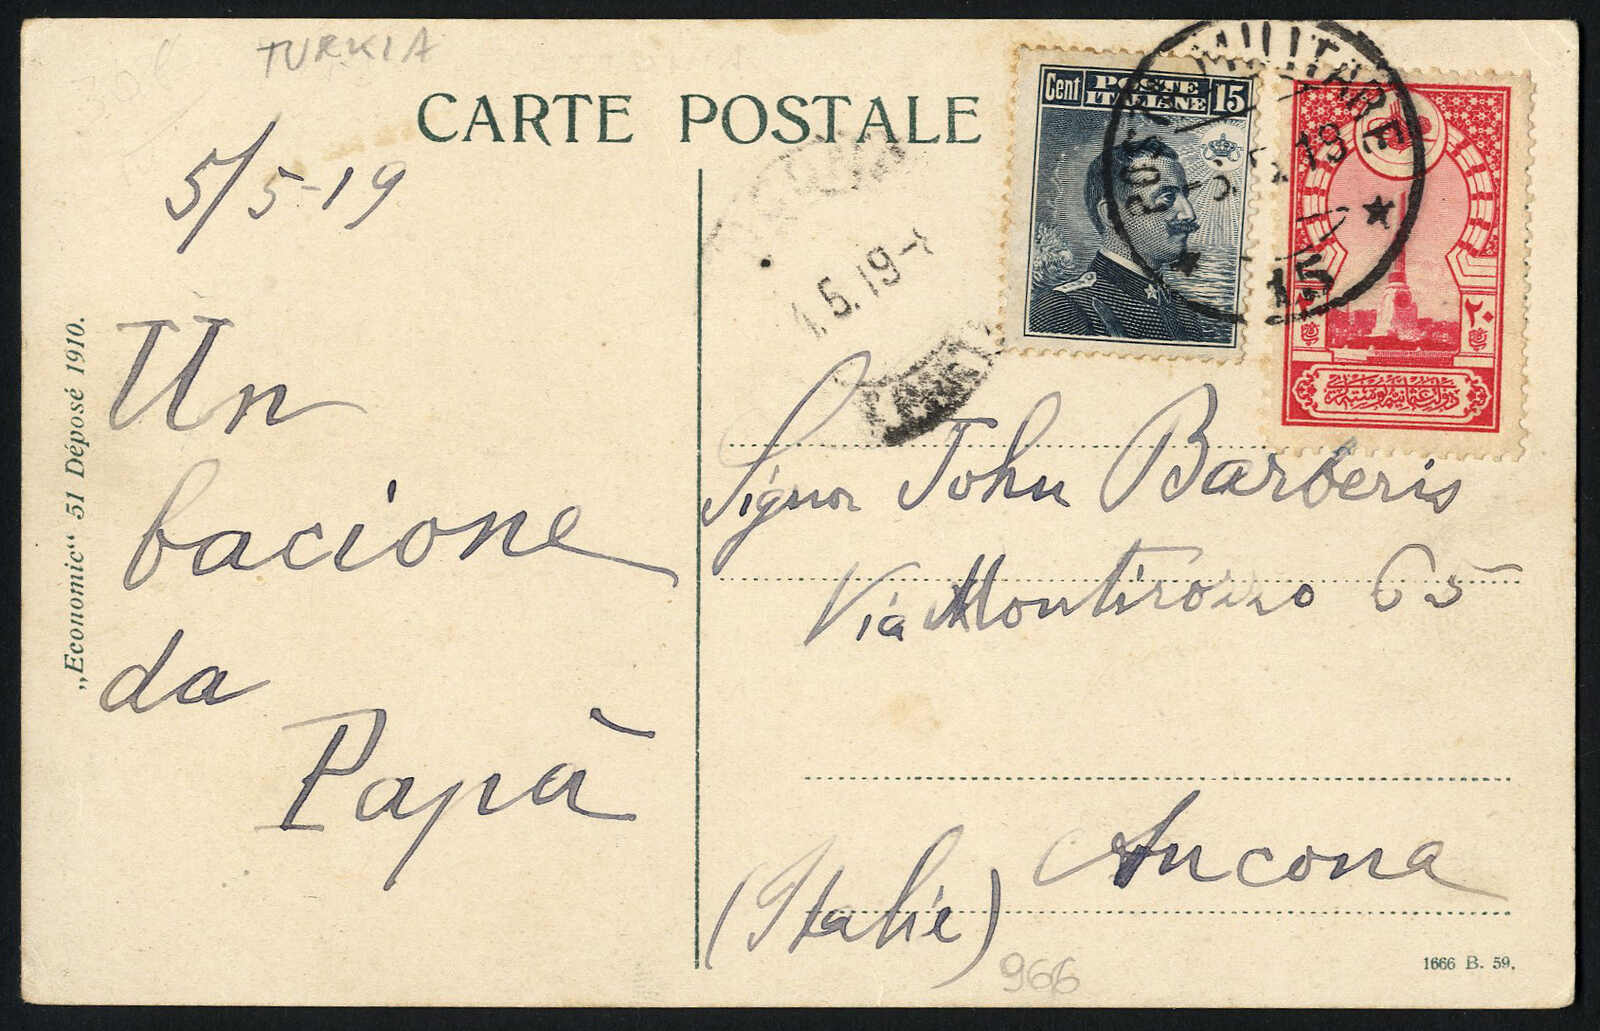 TURKIA
CARTE POSTALE
5/5-19
Un
bacione
da
Papà
„Economic“ 51 Déposé 1910.
Cent POSTE ITALIANE 15
POSTA MILITARE
5 19
15
٢٠
.5.19-
Signor John Barberis
Via Montirozzo 65
Ancona
(Italie)
966
1666 B. 59.